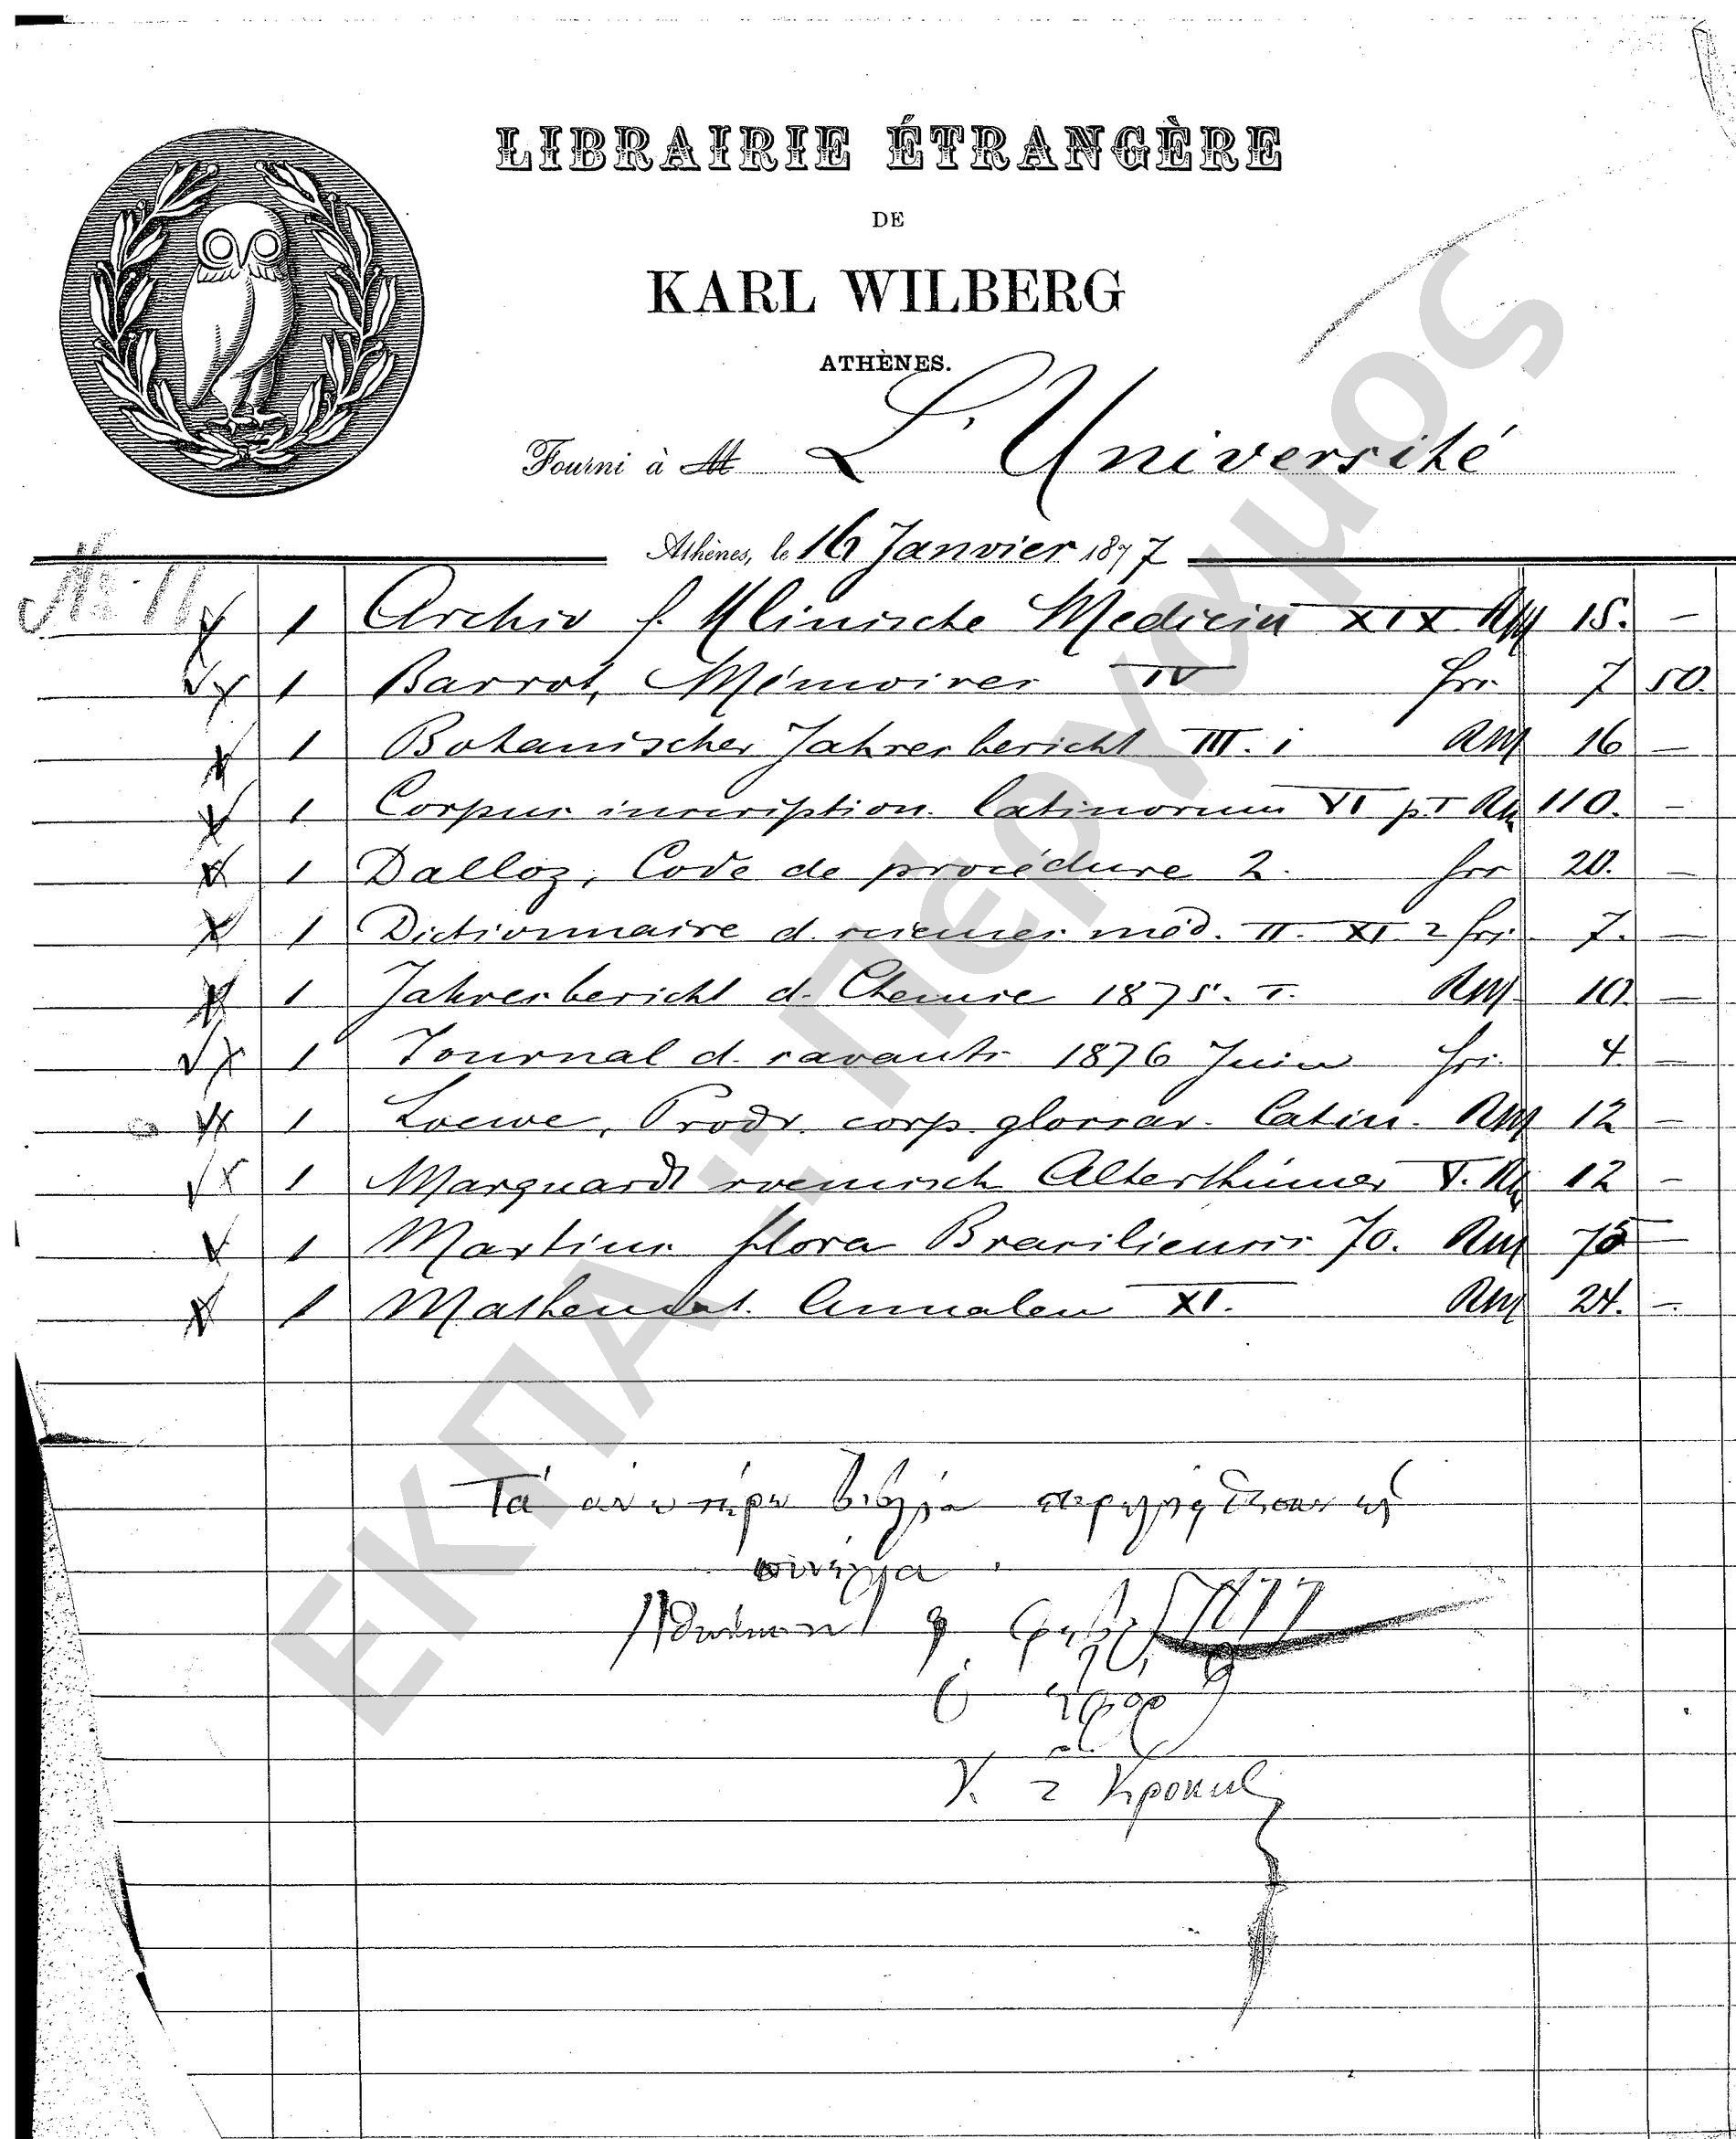 LIBRAIRIE ÉTRANGÈRE
DE
KARL WILBERG
ATHÈNES.
Fourni à M L'Université
Athènes, le 16 Janvier 1877
No 11
1 Archiv f. Klinische Medicin XIX. RM 15. —
1 Barrot, Mémoires IV frs. 7 50.
1 Botanischer Jahresbericht III. i RM 16 —
1 Corpus inscription. latinorum VI p. I RM 110. —
1 Dalloz, Code de procédure 2. frs 20. —
1 Dictionnaire d. sciences méd. II. XI. 2 frs. 7. —
1 Jahresbericht d. Chemie 1875. I. RM 10. —
1 Journal d. savants 1876 Juin frs. 4. —
1 Loewe, Prodr. corp. glossar. latin. RM 12 —
1 Marquardt roemisch Alterthümer V. RM 12 —
1 Martius flora Brasiliensis 70. RM 75 —
1 Mathemat. Annalen XI. RM 24. —
Τά ἀνωτέρω βιβλία
1877
ὁ ἔφορ
ΕΚΠΑ - Πέργαμος